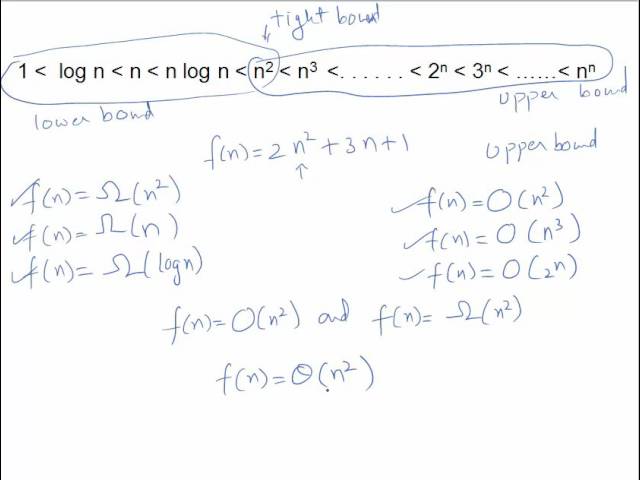 tight bound
1 < log n < n < n log n < n² < n³ < . . . . . . < 2ⁿ < 3ⁿ < ...... < nⁿ
lower bond
upper bond
f(n) = 2n² + 3n + 1
upper bond
f(n) = Ω(n²)
f(n) = O(n²)
f(n) = Ω(n)
f(n) = O(n³)
f(n) = Ω(logn)
f(n) = O(2n)
f(n) = O(n²) and f(n) = Ω(n²)
f(n) = Θ(n²)